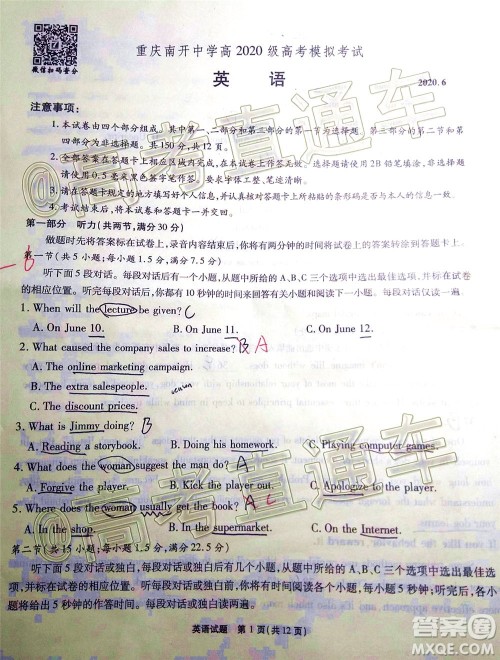 微信扫码查分
重庆南开中学高 2020 级高考模拟考试
英 语
2020.6
注意事项：
1. 本试卷由四个部分组成。其中，第一、二部分和第三部分的第一节为选择题。第三部分的第二节和第四
部分为非选择题。共 150 分，共 12 页。
2. 全部答案在答题卡上相应区域内完成，在本试卷上作答无效。选择题请使用 2B 铅笔填涂，非选择
题请使用 0.5 毫米黑色签字笔作答。要求字体工整、笔迹清楚。
3. 请在答题卡规定的地方填写好个人信息，并认真核对答题卡上所粘贴的条形码是否与本人信息一致。
4. 考试结束后，将答题卡上交。
第一部分 听力（共两节，满分 30 分）
做题时先将答案标在试卷上，录音内容结束后，你将有两分钟的时间将试卷上的答案转涂到答题卡上。
第一节（共 5 小题；每小题 1.5 分，满分 7.5 分）
-6
听下面 5 段对话。每段对话后有一个小题，从题中所给的 A、B、C 三个选项中选出最佳选项，并标在试卷
的相应位置。听完每段对话后，你都有 10 秒钟的时间来回答有关小题和阅读下一小题。每段对话仅读一遍。
1. When will the lecture be given? C
A. On June 10. B. On June 11. C. On June 12.
2. What caused the company sales to increase? B A
A. The online marketing campaign.
B. The extra salespeople.
C. The discount prices.
3. What is Jimmy doing? B
A. Reading a storybook. B. Doing his homework. C. Playing computer games.
4. What does the woman suggest the man do? A
A. Forgive the player. B. Kick the player out. C. Apologize to the player.
5. Where does the woman usually get the book? A C
A. In the shop. B. In the supermarket. C. On the Internet.
第二节（共 15 小题；每小题 1.5 分，满分 22.5 分）
听下面几段对话或独白，每段对话或独白后有几个小题，从题中所给的 A、B、C 三个选项中选出最佳选
项，并标在试卷的相应位置。听每段对话或独白前，你将有时间阅读各个小题，每小题 5 秒钟；听完后，各小题
将给出 5 秒钟的作答时间。每段对话或独白读两遍。
英语试题 第 1 页（共 12 页）
@高考直通车
@高考直通车
作业帮